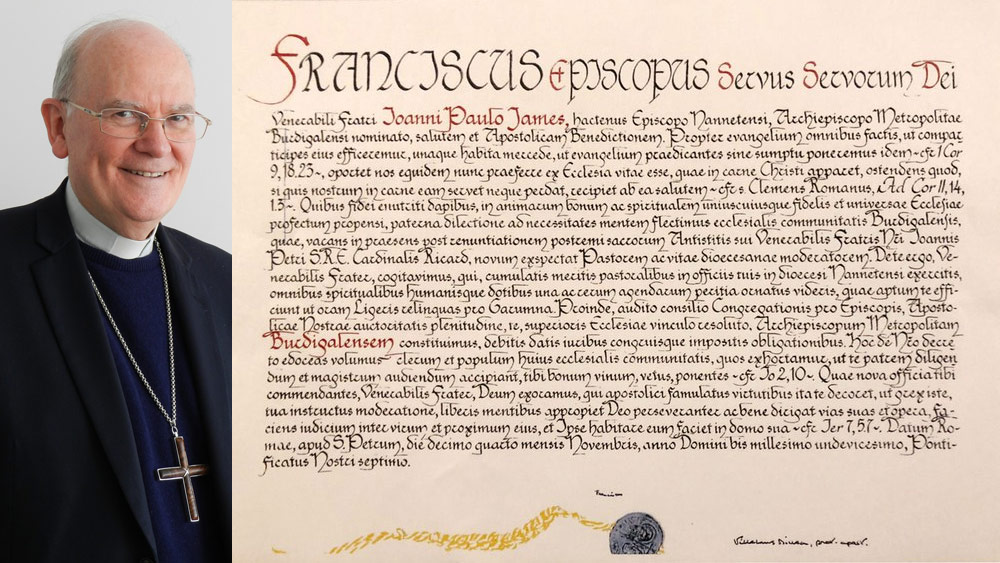 FRANCISCUS EPISCOPUS Servus Servorum Dei
Venerabili Fratri Ioanni Paulo James, hactenus Episcopo Nannetensi, Archiepiscopo Metropolitae
Burdigalensi nominato, salutem et Apostolicam Benedictionem. Propter evangelium omnibus factis, ut compar-
ticipes eius efficeremur, unaque habita mercede, ut evangelium praedicantes sine sumptu poneremus idem ~ cfr 1 Cor
9, 18.23 ~, oportet nos equidem nunc praeferre ex Ecclesia vitae esse, quae in carne Christi apparet, ostendens quod,
si quis nostrum in carne eam servet neque perdat, recipiet ab ea salutem ~ cfr s. Clemens Romanus, Ad Cor II, 14,
1.3 ~. Quibus fidei enutriti dapibus, in animarum bonum ac spiritualem uniuscuiusque fidelis et universae Ecclesiae
profectum propensi, paterna dilectione ad necessitates mentem flectimus ecclesialis communitatis Burdigalensis,
quae, vacans in praesens post renuntiationem postremi sacrorum Antistitis sui Venerabilis Fratris Nri Ioannis
Petri S.R.E. Cardinalis Ricard, novum exspectat Pastorem ac vitae dioecesanae moderatorem. De te ergo, Ve-
nerabilis Frater, cogitavimus, qui, cumulatis meritis pastoralibus in officiis tuis in dioecesi Nannetensi exercitis,
omnibus spiritualibus humanisque dotibus una ac rerum agendarum peritia ornatus videris, quae aptum te effi-
ciunt ut oram Ligeris relinquas pro Garumna. Proinde, audito consilio Congregationis pro Episcopis, Aposto-
licae Nostrae auctoritatis plenitudine, te, superioris Ecclesiae vinculo resoluto, Archiepiscopum Metropolitam
Burdigalensem constituimus, debitis datis iuribus congruisque impositis obligationibus. Hoc de Neo decre-
to edoceas volumus clerum et populum huius ecclesialis communitatis, quos exhortamur, ut te patrem diligen-
dum et magistrum audiendum accipiant, tibi bonum vinum, vetus, ponentes ~ cfr Io 2,10 ~. Quae nova officia tibi
commendantes, Venerabilis Frater, Deum exoramus, qui apostolici famulatus virtutibus ita te decoret, ut grex iste,
tua instructus moderatione, liberis mentibus appropiet Deo perseveranter ac bene dirigat vias suas et opera, fa-
ciens iudicium inter virum et proximum eius, et Ipse habitare eum faciet in domo sua ~ cfr Ier 7, 5.7 ~. Datum Ro-
mae, apud S. Petrum, die decimo quarto mensis Novembris, anno Domini bis millesimo undevicesimo, Ponti-
ficatus Nostri septimo.
Franciscus